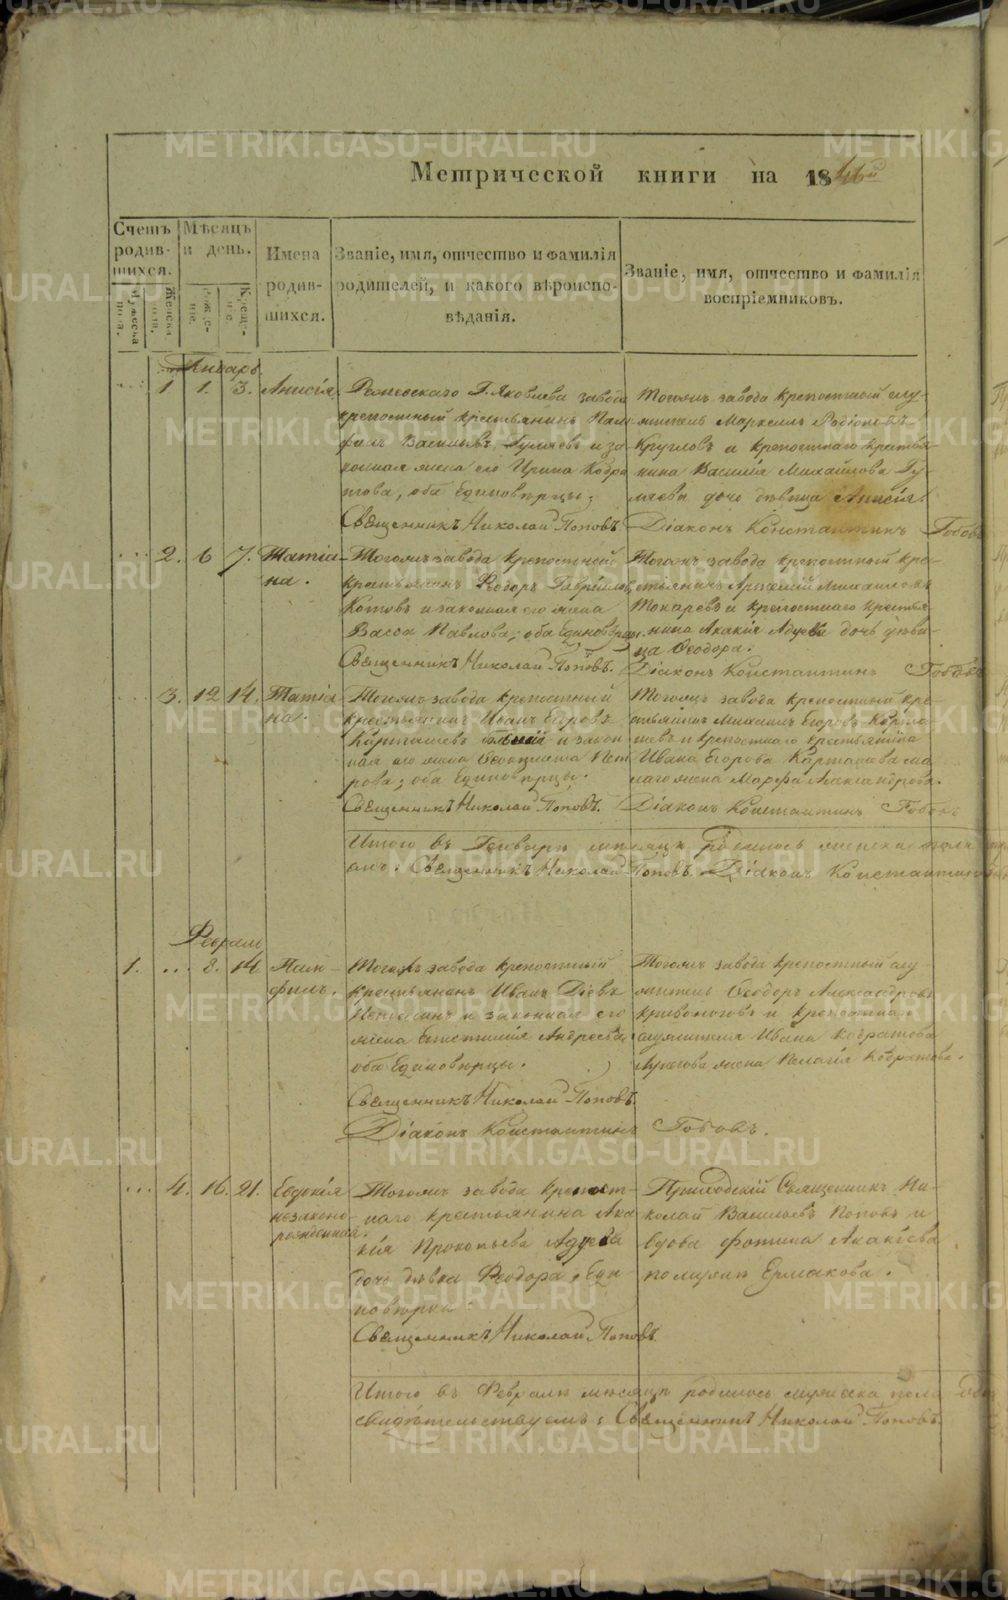 METRIKI.GASO-URAL.RU
Метрической книги на 1846й
Счетъ родив-шихся.
Мужеска пола.
Женска пола.
Мѣсяцъ и день.
Рожде-ніе.
Креще-ніе.
Имена родив-шихся.
Званіе, имя, отчество и фамилія родителей, и какого вѣроиспо-вѣданія.
Званіе, имя, отчество и фамилія воспріемниковъ.
Январь
1. 1. 3. Анисія.
Режевскаго Г. Яковлева завода
крепостный крестьянинъ Пам
филъ Васильевъ Гуляевъ и за
конная жена его Ирина Кодра
това, оба Единовѣрцы;
Священникъ Николай Поповъ
Тогожъ завода крепостный слу-
житель Маркелъ Родіоновъ
Кругловъ и крепостнаго крестья
нина Василія Михайлова Гу-
ляева дочь дѣвица Анисія.
Діаконъ Константинъ Гобовъ
2. 6 7. Татіа-
на.
Тогожъ завода крепостной
крестьянинъ Феодоръ Гавриловъ
Котовъ и законная его жена
Васса Павлова; оба Единовѣрцы.
Священникъ Николай Поповъ.
Тогожъ завода крепостный кре-
стьянинъ Михайловъ
Токаревъ и крепостнаго крестья
нина Акакія Адуева дочь дѣви-
ца Феодора.
Діаконъ Константинъ Гобовъ
3. 12 14. Татіа
на.
Тогожъ завода крепостный
крестьянинъ Иванъ Егоровъ
Карташевъ и закон
ная его жена Пет
рова; оба Единовѣрцы.
Священникъ Николай Поповъ.
Тогожъ завода крепостный кре-
стьянинъ Михаилъ Егоровъ Карта
шевъ и крепостнаго крестьянина
Ивана Егорова Карташева ма-
лаго жена Марфа Александрова.
Діаконъ Константинъ Гобовъ
Итого въ Генваре месяце родилось женска пола
Священникъ Николай Поповъ. Діаконъ Константинъ
Февраль
1. ... 8. 14 Пам-
филъ.
Тогожъ завода крепостный
крестьянинъ Иванъ
и законная его
жена Андреева
оба Единовѣрцы.
Священникъ Николай Поповъ.
Діаконъ Константинъ Гобовъ.
Тогожъ завода крепостный слу-
житель Феодоръ Александровъ
Кривоноговъ и крепостнаго
служителя Ивана Кодратова
жена Пелагія Кодратова.
4. 16. 21. Евдокія
незаконо-
рожденная.
Тогожъ завода крепост-
наго крестьянина Ака
кія Прокопьева Адуева
дочь дѣвка Феодора, Еди
новѣрка.
Священникъ Николай Поповъ
Приходскій Священникъ Ни-
колай Васильевъ Поповъ и
вдова Фотина Акакіева
Ермакова.
Итого въ Феврале месяце родилось мужеска пола
свидѣтельствуемъ: Священникъ Николай Поповъ.